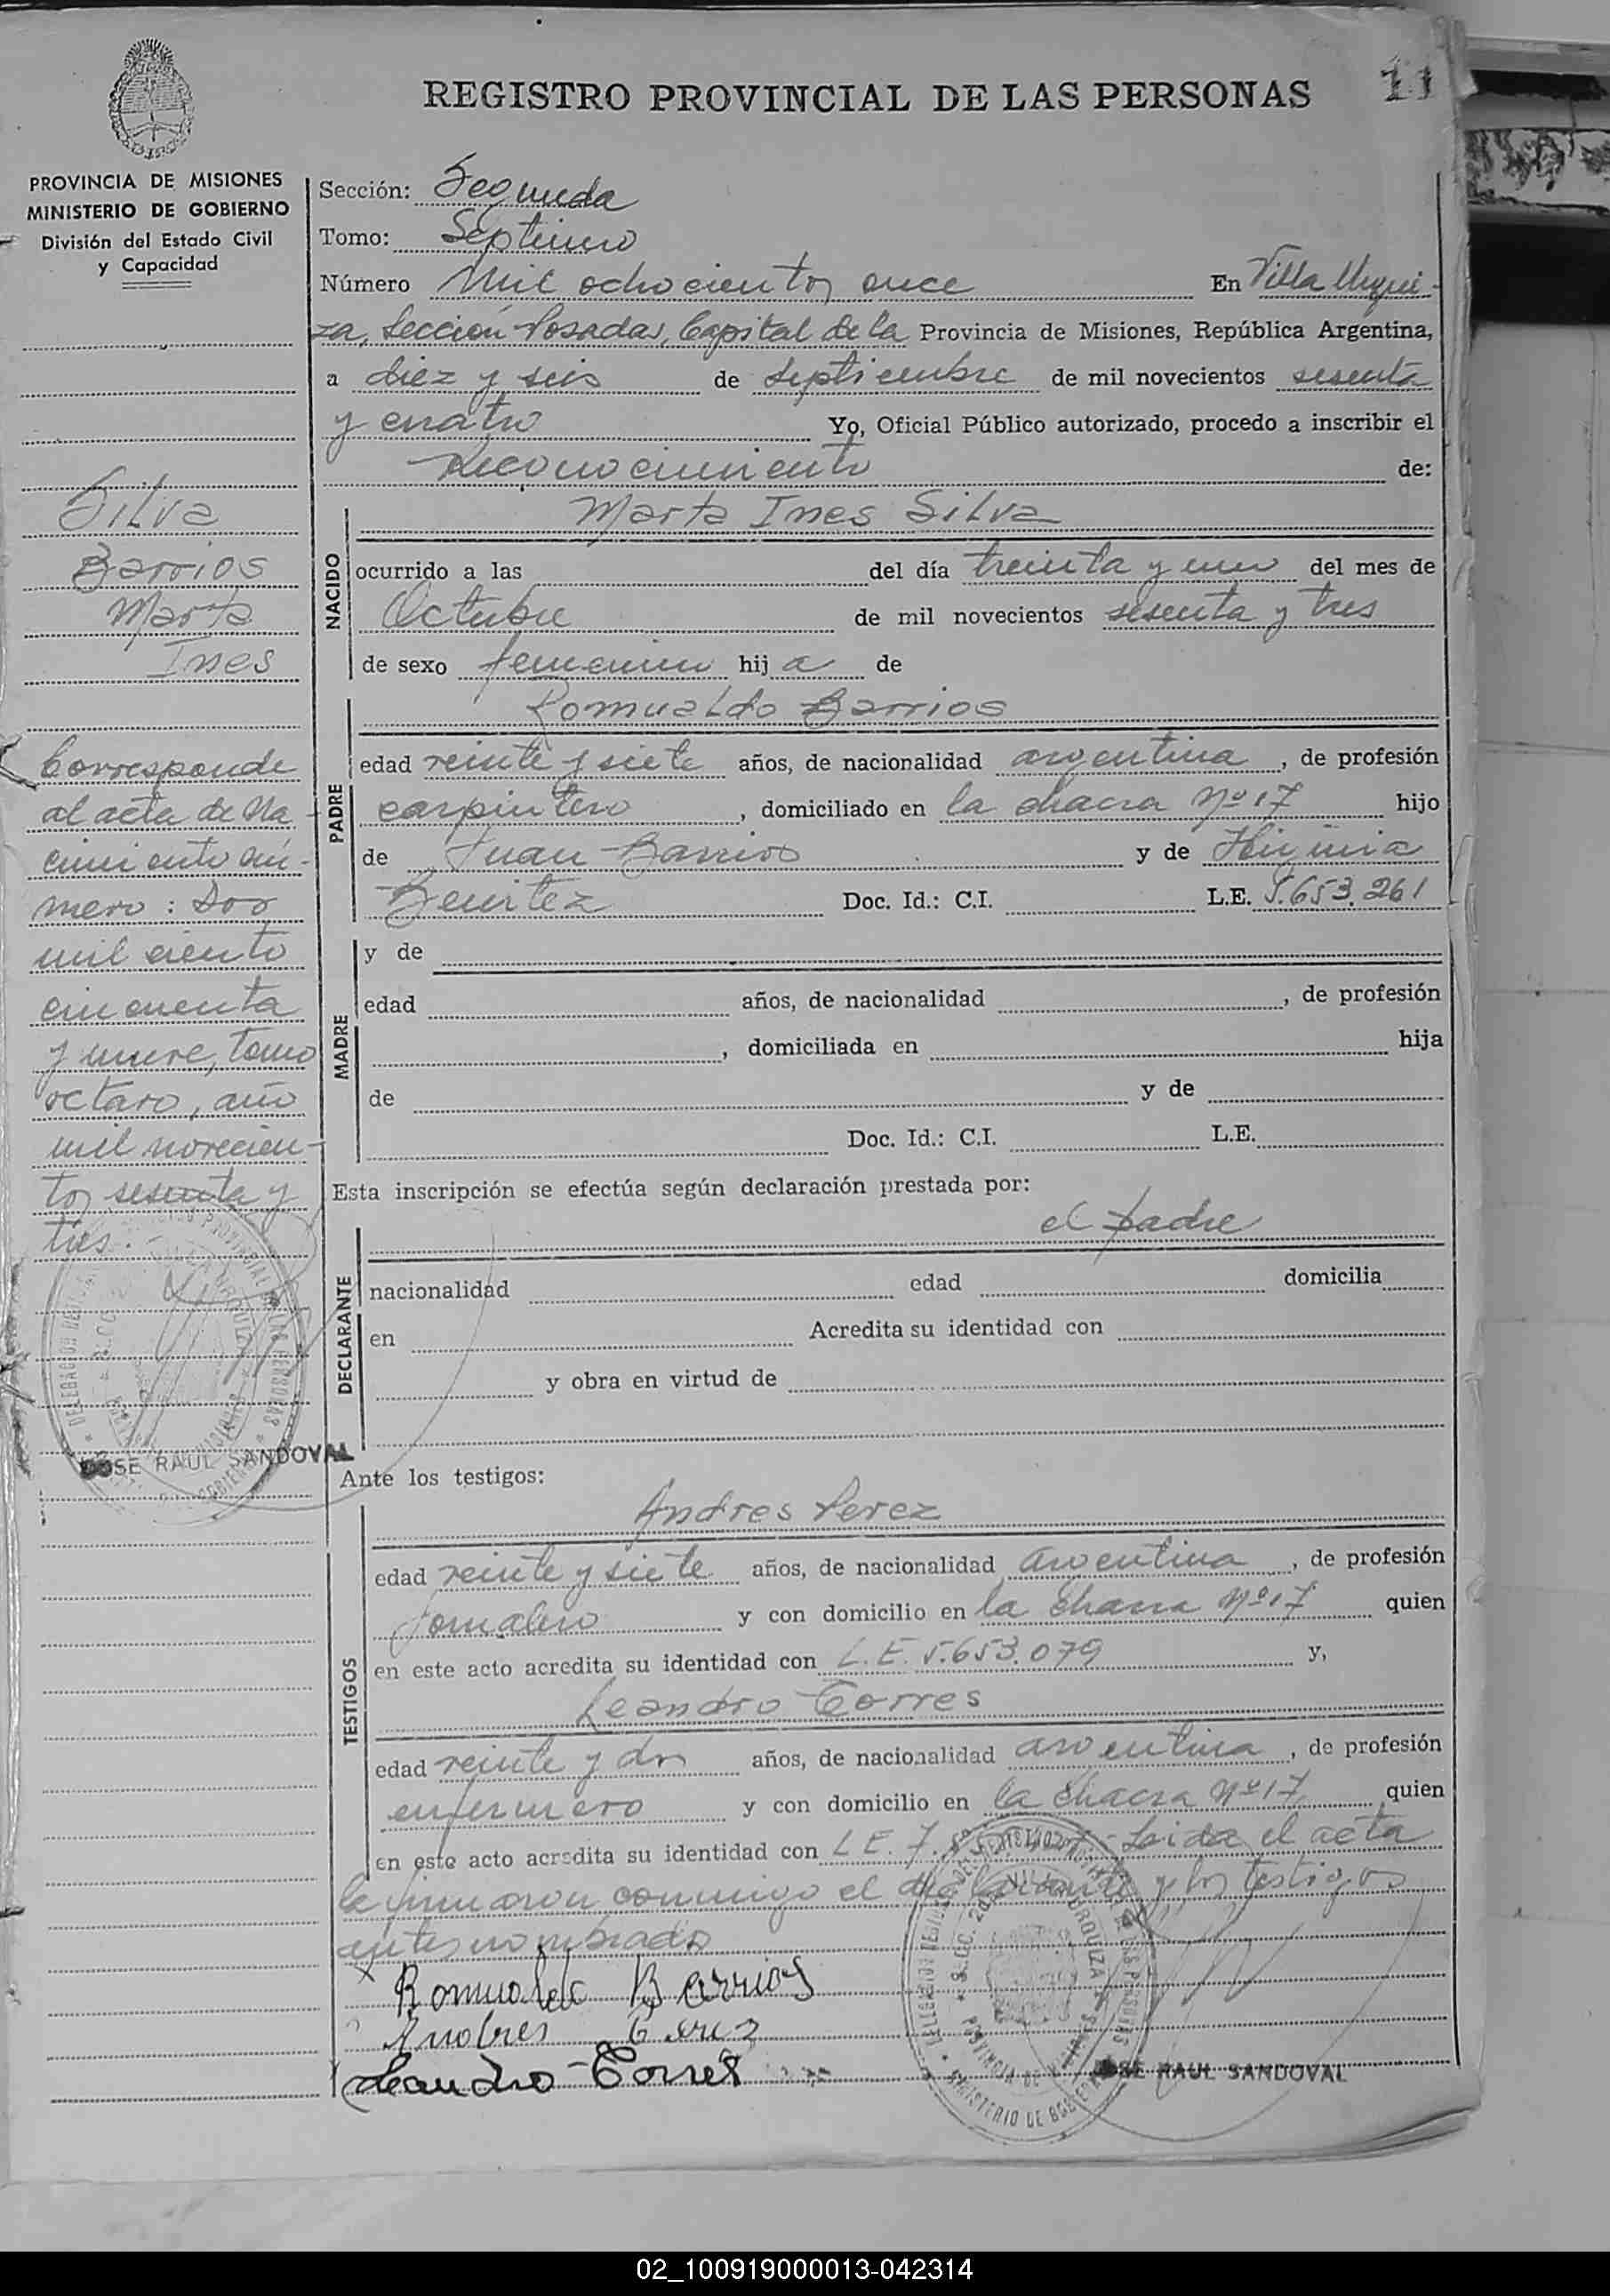 11
REGISTRO PROVINCIAL DE LAS PERSONAS
PROVINCIA DE MISIONES
MINISTERIO DE GOBIERNO
División del Estado Civil
y Capacidad
Silva
Barrios
Marta
Ines
Corresponde
al acta de Na-
cimiento nú-
mero: Dos
mil ciento
cincuenta
y nueve, tomo
octavo, año
mil novecien-
tos sesenta y
tres.-
JOSE RAUL SANDOVAL
Sección: Segunda
Tomo: Septimo
Número Mil ochocientos once En Villa Urqui-
za, Sección Posadas, Capital de la Provincia de Misiones, República Argentina,
a diez y seis de Septiembre de mil novecientos sesenta
y cuatro Yo, Oficial Público autorizado, procedo a inscribir el
Reconocimiento de:
Marta Ines Silva
NACIDO
ocurrido a las del día treinta y uno del mes de
Octubre de mil novecientos sesenta y tres
de sexo femenino hija de
Romualdo Barrios
PADRE
edad veinte y siete años, de nacionalidad argentina, de profesión
carpintero, domiciliado en la chacra Nº 17 hijo
de Juan Barrios y de Higinia
Benitez Doc. Id.: C.I. L.E. 5.653.261
MADRE
y de
edad años, de nacionalidad , de profesión
, domiciliada en hija
de y de
Doc. Id.: C.I. L.E.
Esta inscripción se efectúa según declaración prestada por:
el padre
DECLARANTE
nacionalidad edad domicilia
en Acredita su identidad con
y obra en virtud de
Ante los testigos:
Andres Perez
TESTIGOS
edad veinte y siete años, de nacionalidad argentina, de profesión
Jornalero y con domicilio en la chacra Nº 17 quien
en este acto acredita su identidad con L.E. 5.653.079 y,
Leandro Torres
edad veinte y dos años, de nacionalidad argentina, de profesión
enfermero y con domicilio en la chacra Nº 17 quien
en este acto acredita su identidad con L.E. 7. Leida el acta
la firmaron conmigo el declarante y los testigos
antes nombrados
x Romualdo Barrios
Andres Perez
Leandro Torres
JOSE RAUL SANDOVAL
02_100919000013-042314